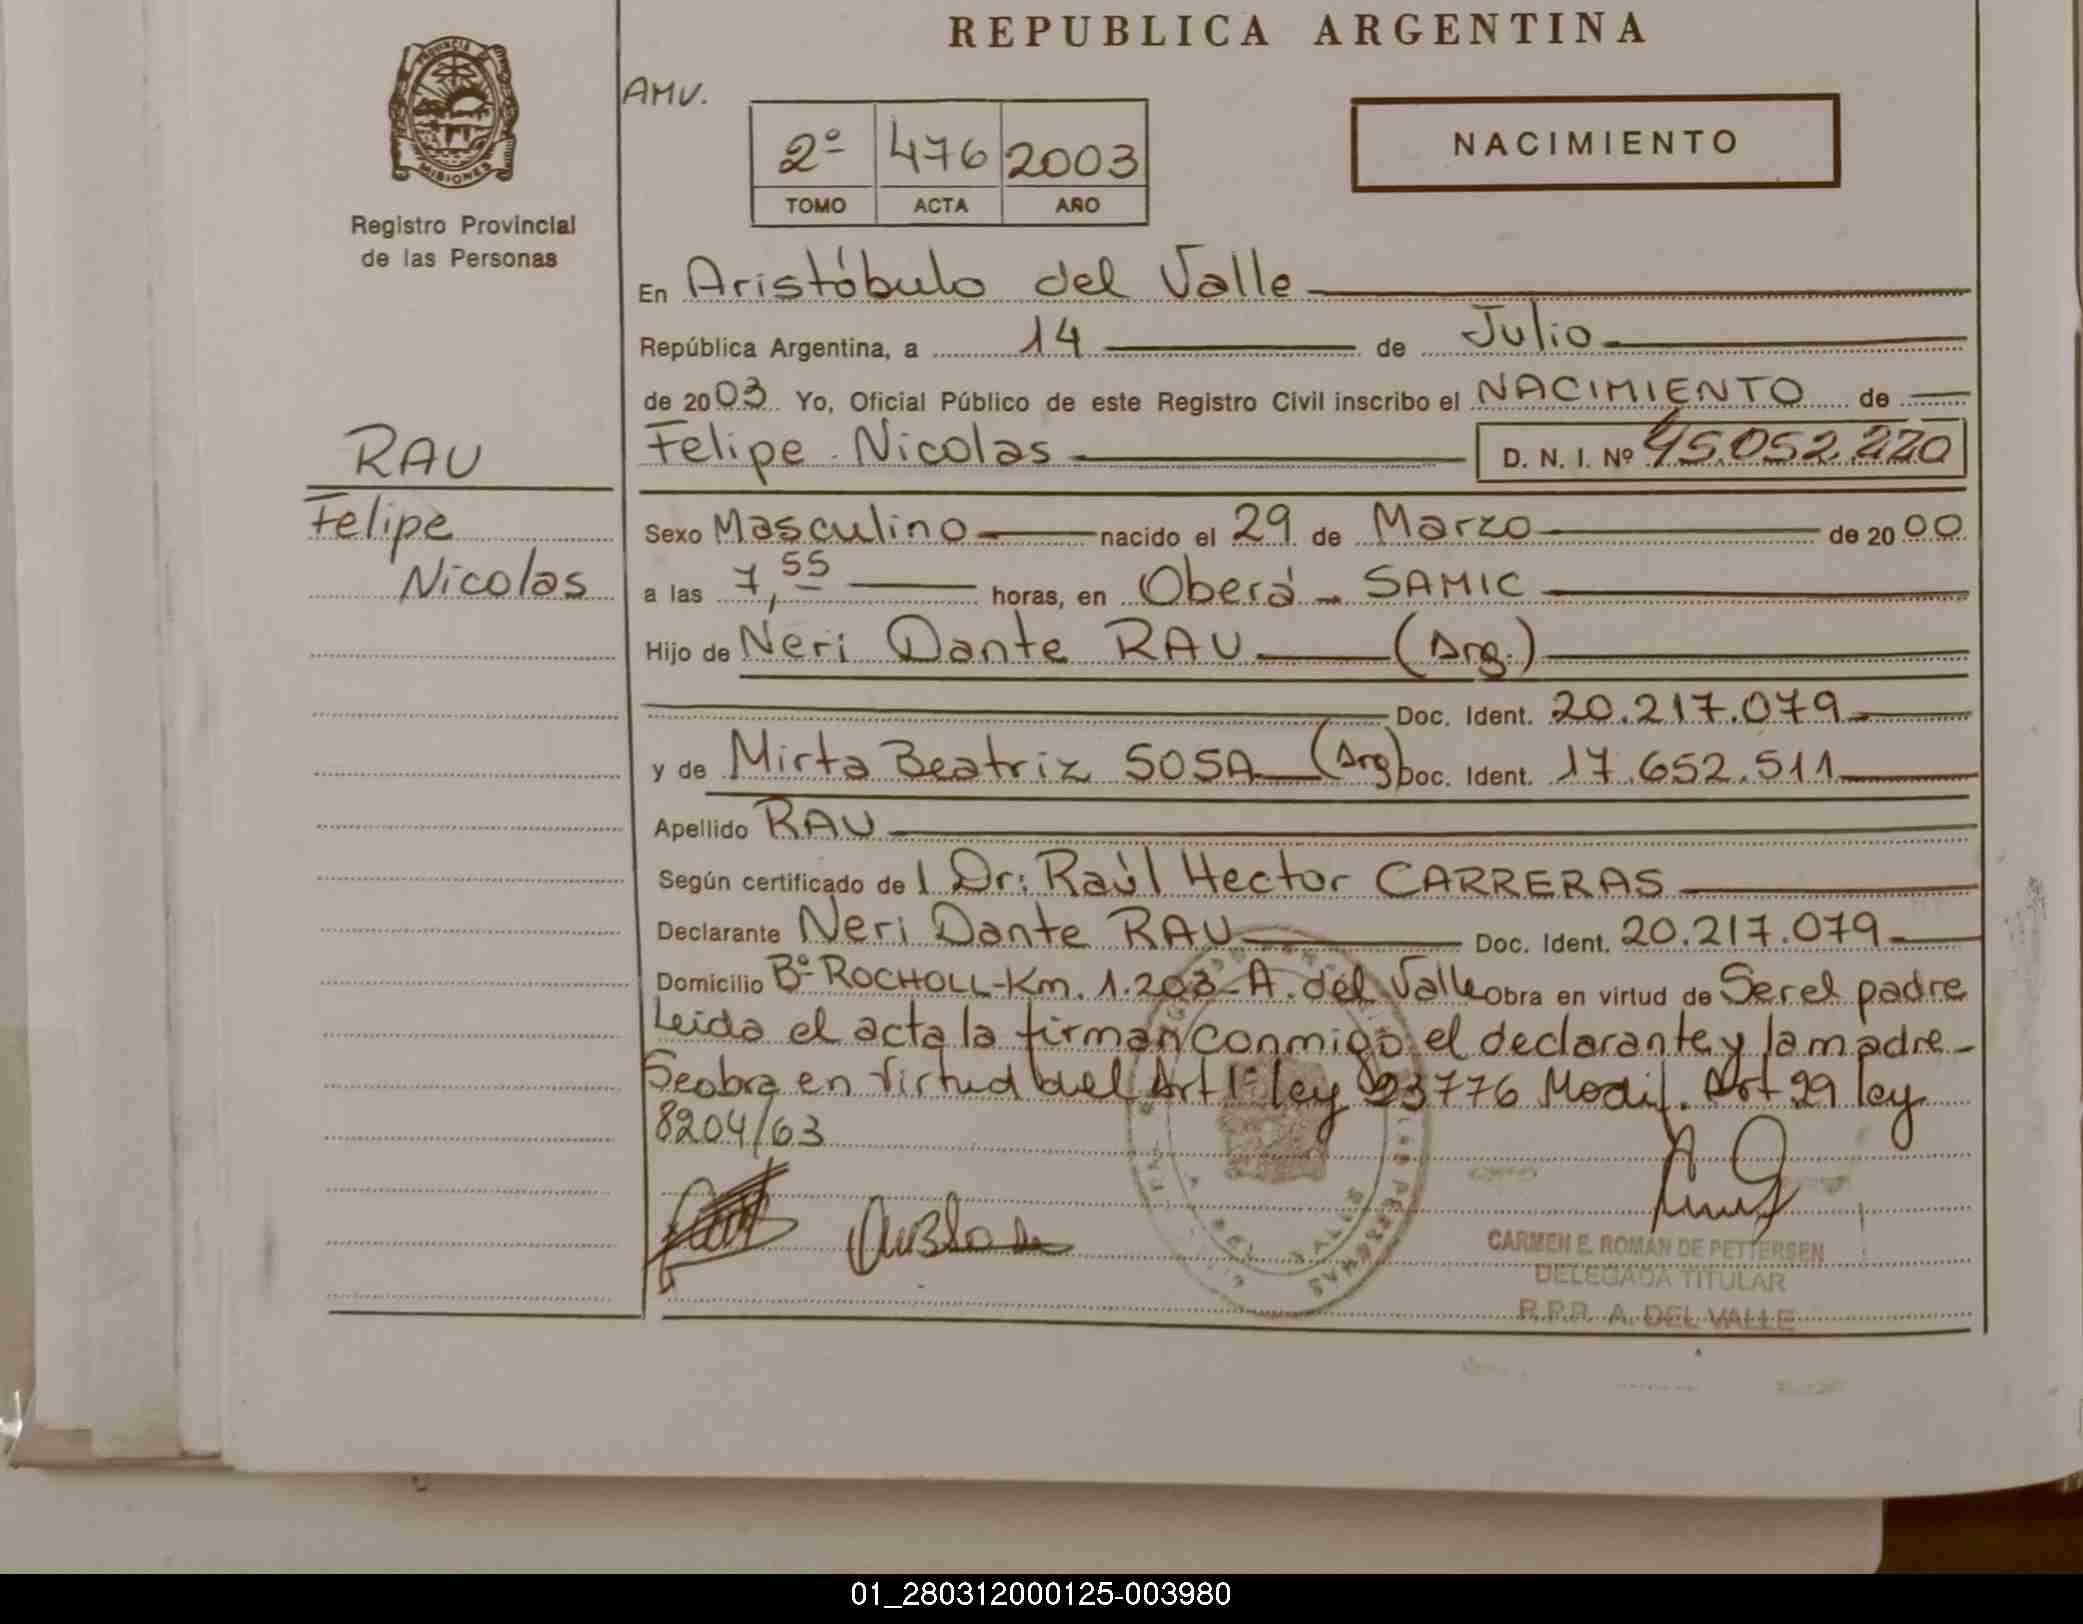 REPUBLICA ARGENTINA
PROVINCIA
MISIONES
Registro Provincial
de las Personas
AMV.
2º 476 2003
TOMO ACTA AÑO
NACIMIENTO
En Aristóbulo del Valle
República Argentina, a 14 de Julio
de 2003 Yo, Oficial Público de este Registro Civil inscribo el NACIMIENTO de
RAU
Felipe Nicolas D. N. I. Nº 45.052.220
Felipe
Nicolas
Sexo Masculino nacido el 29 de Marzo de 2000
a las 7,55 horas, en Oberá - SAMIC
Hijo de Neri Dante RAU (Arg.)
Doc. Ident. 20.217.079
y de Mirta Beatriz SOSA (Arg) Doc. Ident. 17.652.511
Apellido RAU
Según certificado de l Dr: Raúl Hector CARRERAS
Declarante Neri Dante RAU Doc. Ident. 20.217.079-
Domicilio Bº ROCHOLL-Km. 1.203-A. del Valle Obra en virtud de Ser el padre
Leida el acta la firman conmigo el declarante y la madre-
Se obra en virtud del Art 1º ley 23776 Modif. Art 29 ley
8204/63
CARMEN E. ROMAN DE PETTERSEN
DELEGADA TITULAR
R.P.P. A. DEL VALLE
01_280312000125-003980